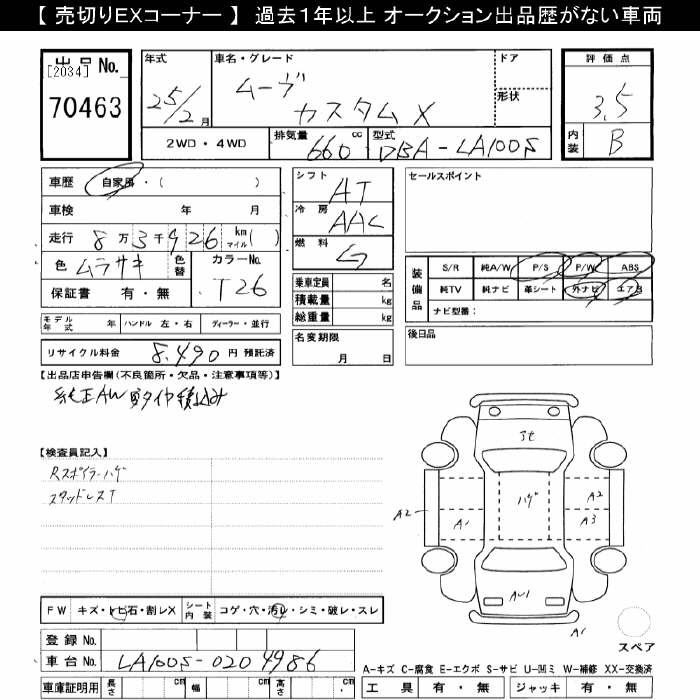 【 売切りEXコーナー 】 過去1年以上 オークション出品歴がない車両
出品 No.
[2034]
70463
年式
25/2月
車名・グレード
ムーヴ
カスタムX
ドア
形状
評価点
3.5
内装 B
2WD・4WD
排気量 660 cc
型式 DBA-LA100S
車歴 自家用・( )
車検 年 月
走行 8万3千926 km マイル( )
色 ムラサキ 色替
カラーNo. T26
保証書 有・無
モデル年式 年 ハンドル 左・右 ディーラー・並行
リサイクル料金 8,490 円 預託済
シフト AT
冷房 AAC
燃料 G
乗車定員 名
積載量 kg
総重量 kg
名変期限 月 日
セールスポイント
装備品
S/R 純A/W P/S P/W ABS
純TV 純ナビ 革シート 外ナビ エアB
ナビ型番:
後日品
【出品店申告欄(不良箇所・欠品・注意事項等)】
純正AW 夏タイヤ積込み
【検査員記入】
Rスポイラーハゲ
スタッドレスT
FW キズ・トビ石・割レX シート内装 コゲ・穴・汚レ・シミ・破レ・スレ
登録 No.
車台 No. LA100S-0204986
車庫証明用 長さ cm 幅 cm 高さ cm
ハゲ
A2
A1
A2
A3
A1
スペア
A-キズ C-腐食 E-エクボ S-サビ U-凹ミ W-補修 XX-交換済
工具 有・無 ジャッキ 有・無